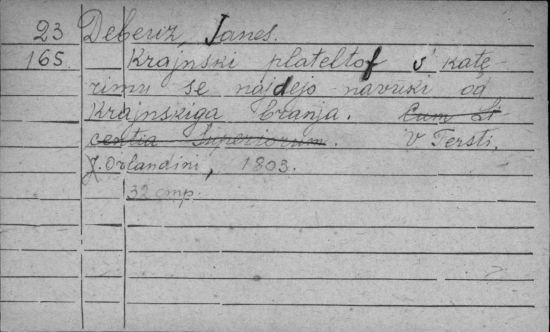 23 Debeuz, Janes.
165. Krajnski plateltof s' katę-
rimu se najdejo navuki od
Krajnskiga branja. Cum Li
centia Superiorum. V Tersti,
J. Orlandini, 1803.
32 cmp.